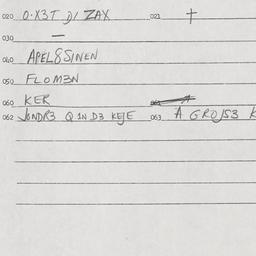 020 O·X3T D/ ZAX 021 +
030 —
040 APEL8SINEN
050 FLOM3N
060 KER
062 JONDR3 Q 1N D3 KEJE 063 A GROJS3 K